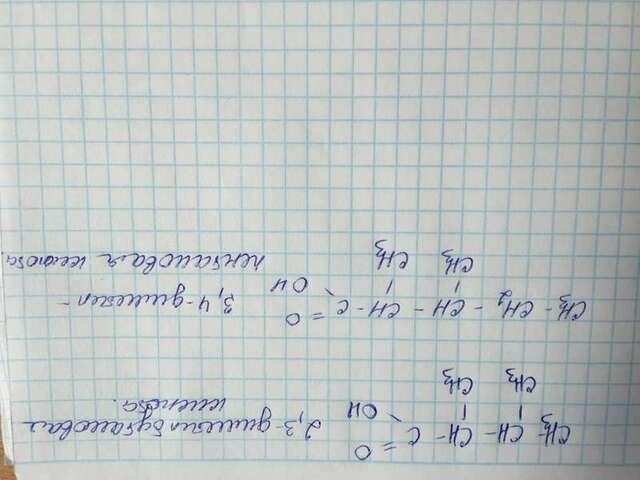 CH₃ - CH - CH - C = O
OH
CH₃ CH₃
2,3-диметилбутановая
кислота.
CH₃ - CH₂ - CH - CH - C = O
OH
CH₃ CH₃
3,4-диметил-
пентановая кислота.